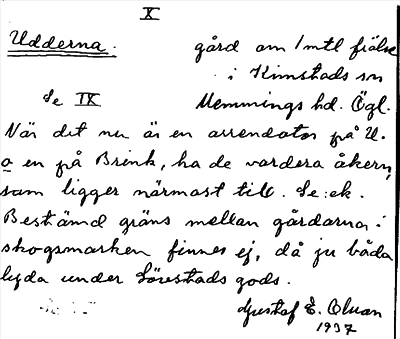 X
Udderna. gård om 1 mtl frälse
i Kimstads sn
Se IX Memmings hd. Ögl.
När det nu är en arrendator på U.
o en på Brink, ha de vardera åkern,
som ligger närmast till. Se: ek.
Bestämd gräns mellan gårdarna i
skogsmarken finnes ej, då ju båda
lyda under Lörestads gods.
Gustaf E. Olsson
1937